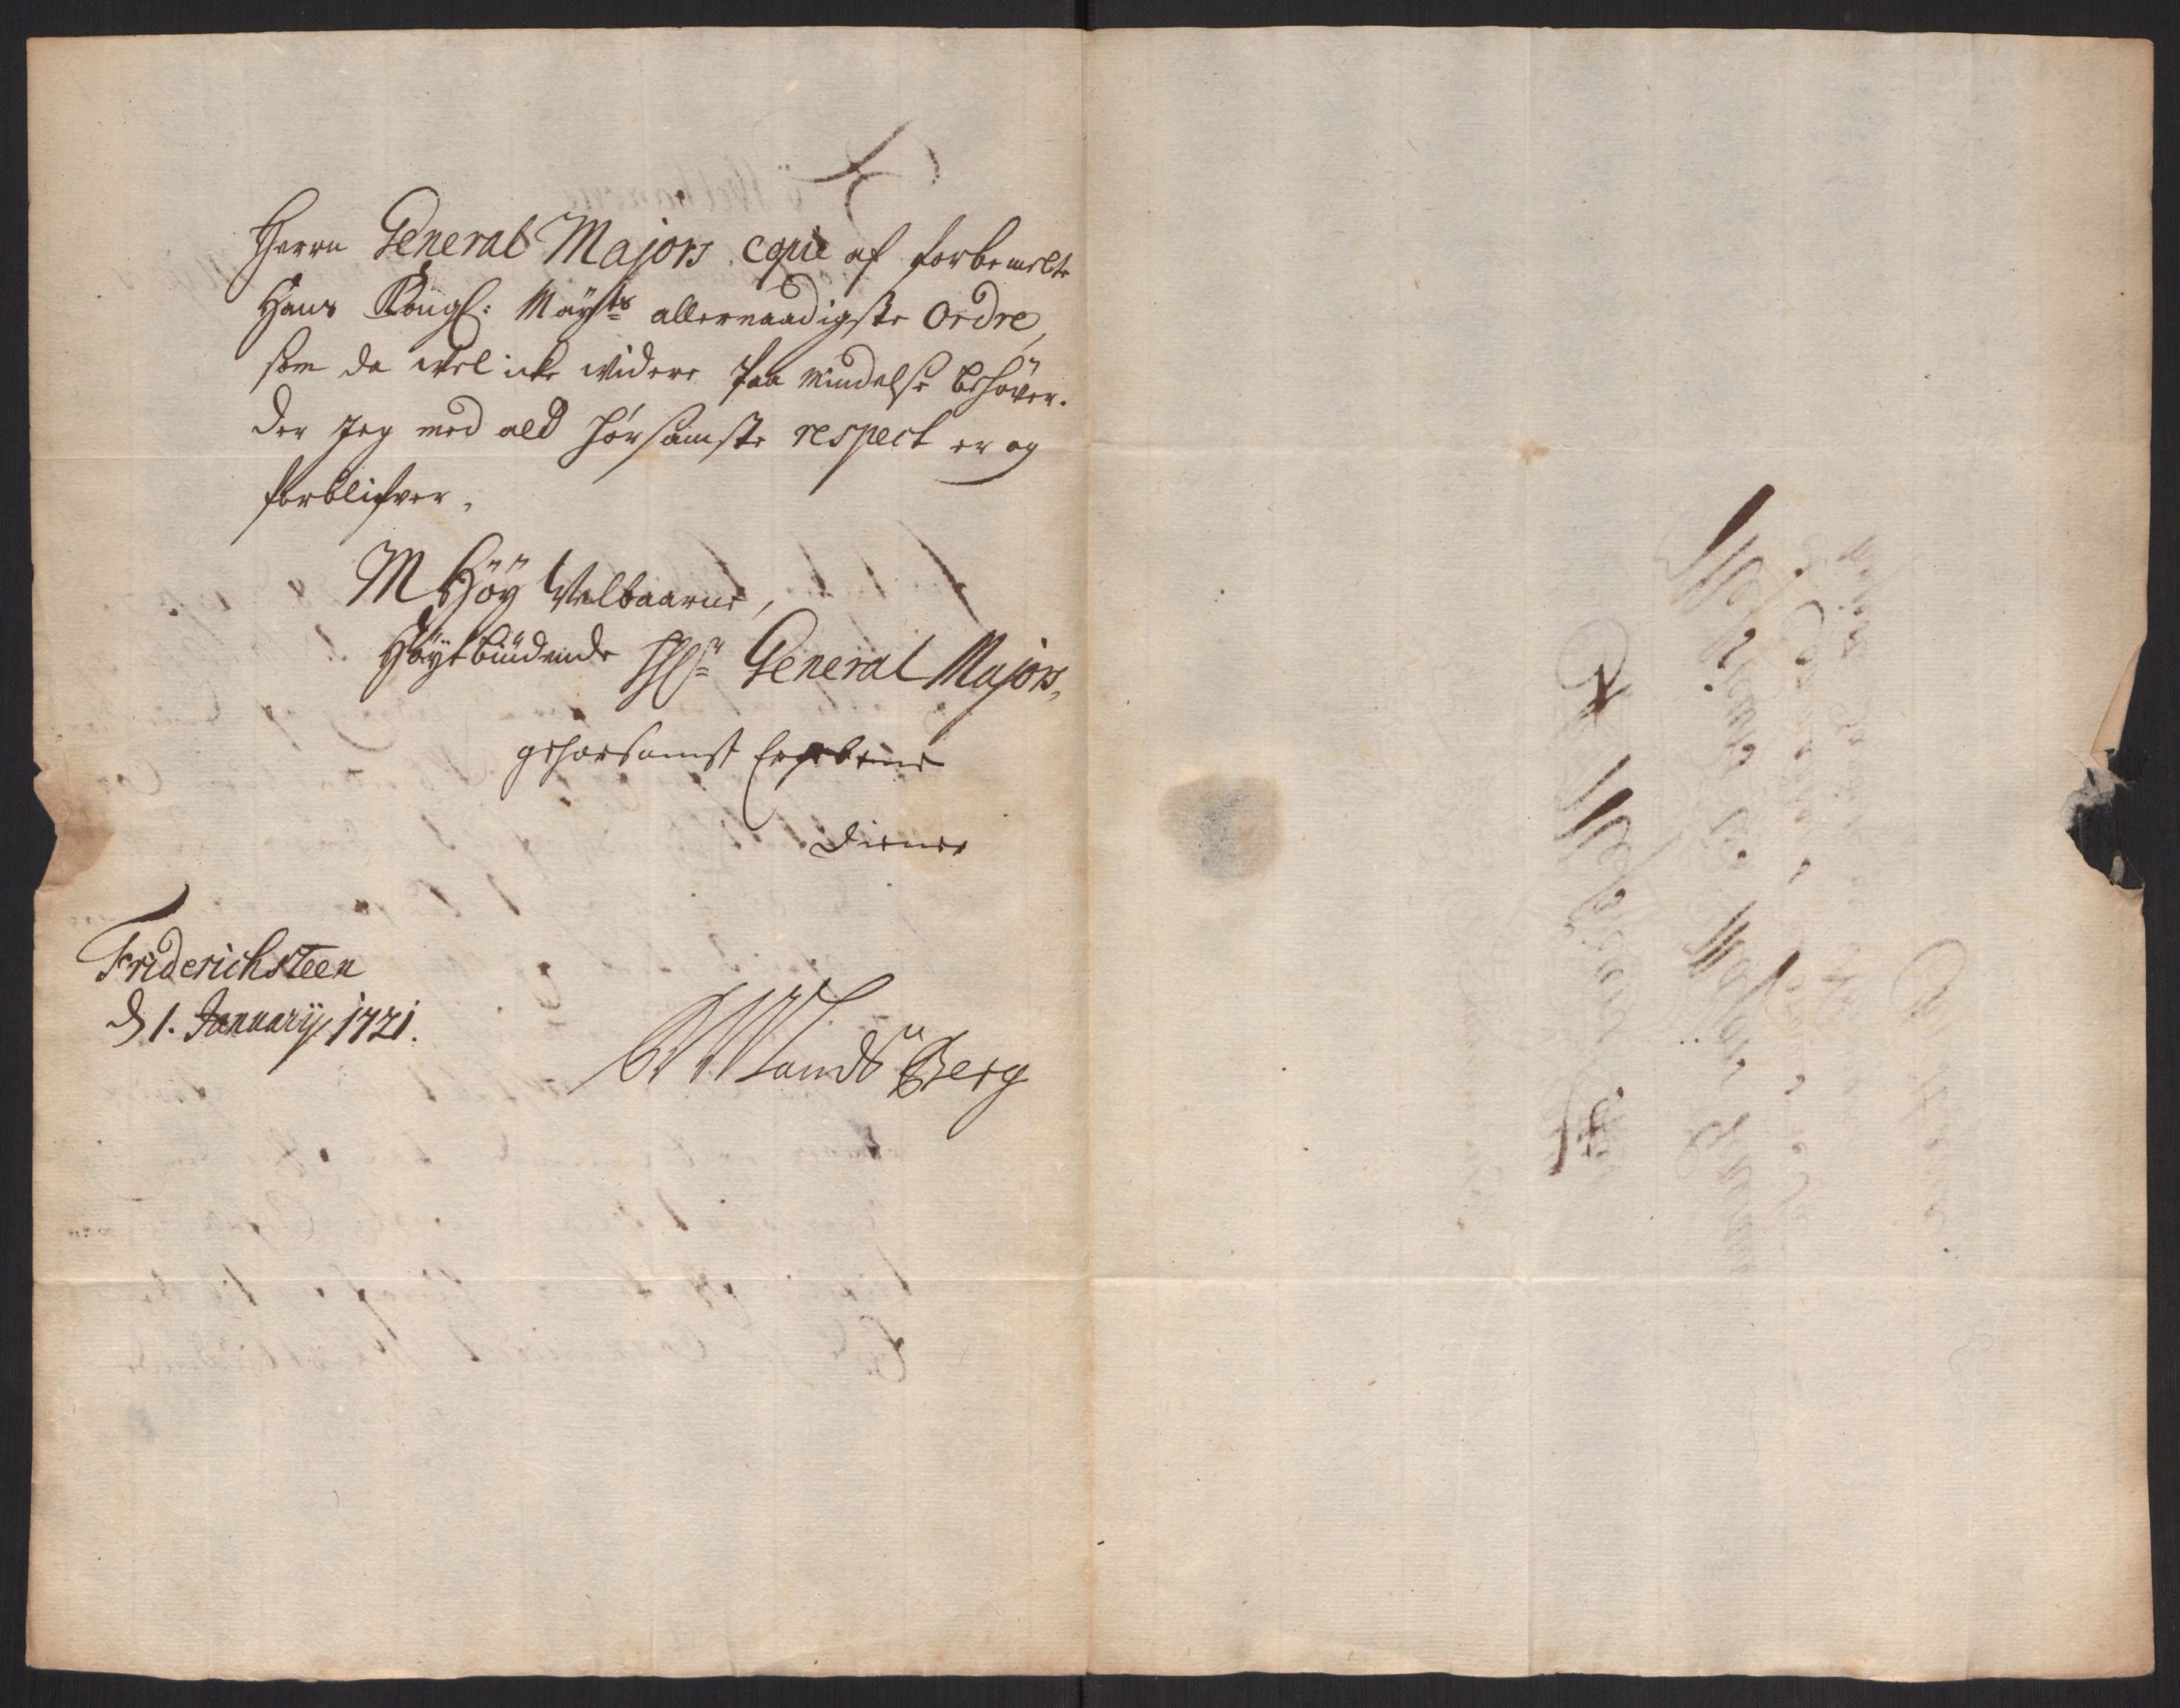 Herrn General Majors copie af forbemelte
Hans Kongl: Maÿts allernaadigste Ordre,
som da vel icke widere Paa mindelse behöver.
der Jeg med ald hörsamste respect er og
forblifver,
Höÿ Velbaarne,
Höÿtbiüdende Hr General Majors,
gehorsamst Ergebene
Diener
Friderichsteen
d 1. Januarÿ 1721.
Landsberg